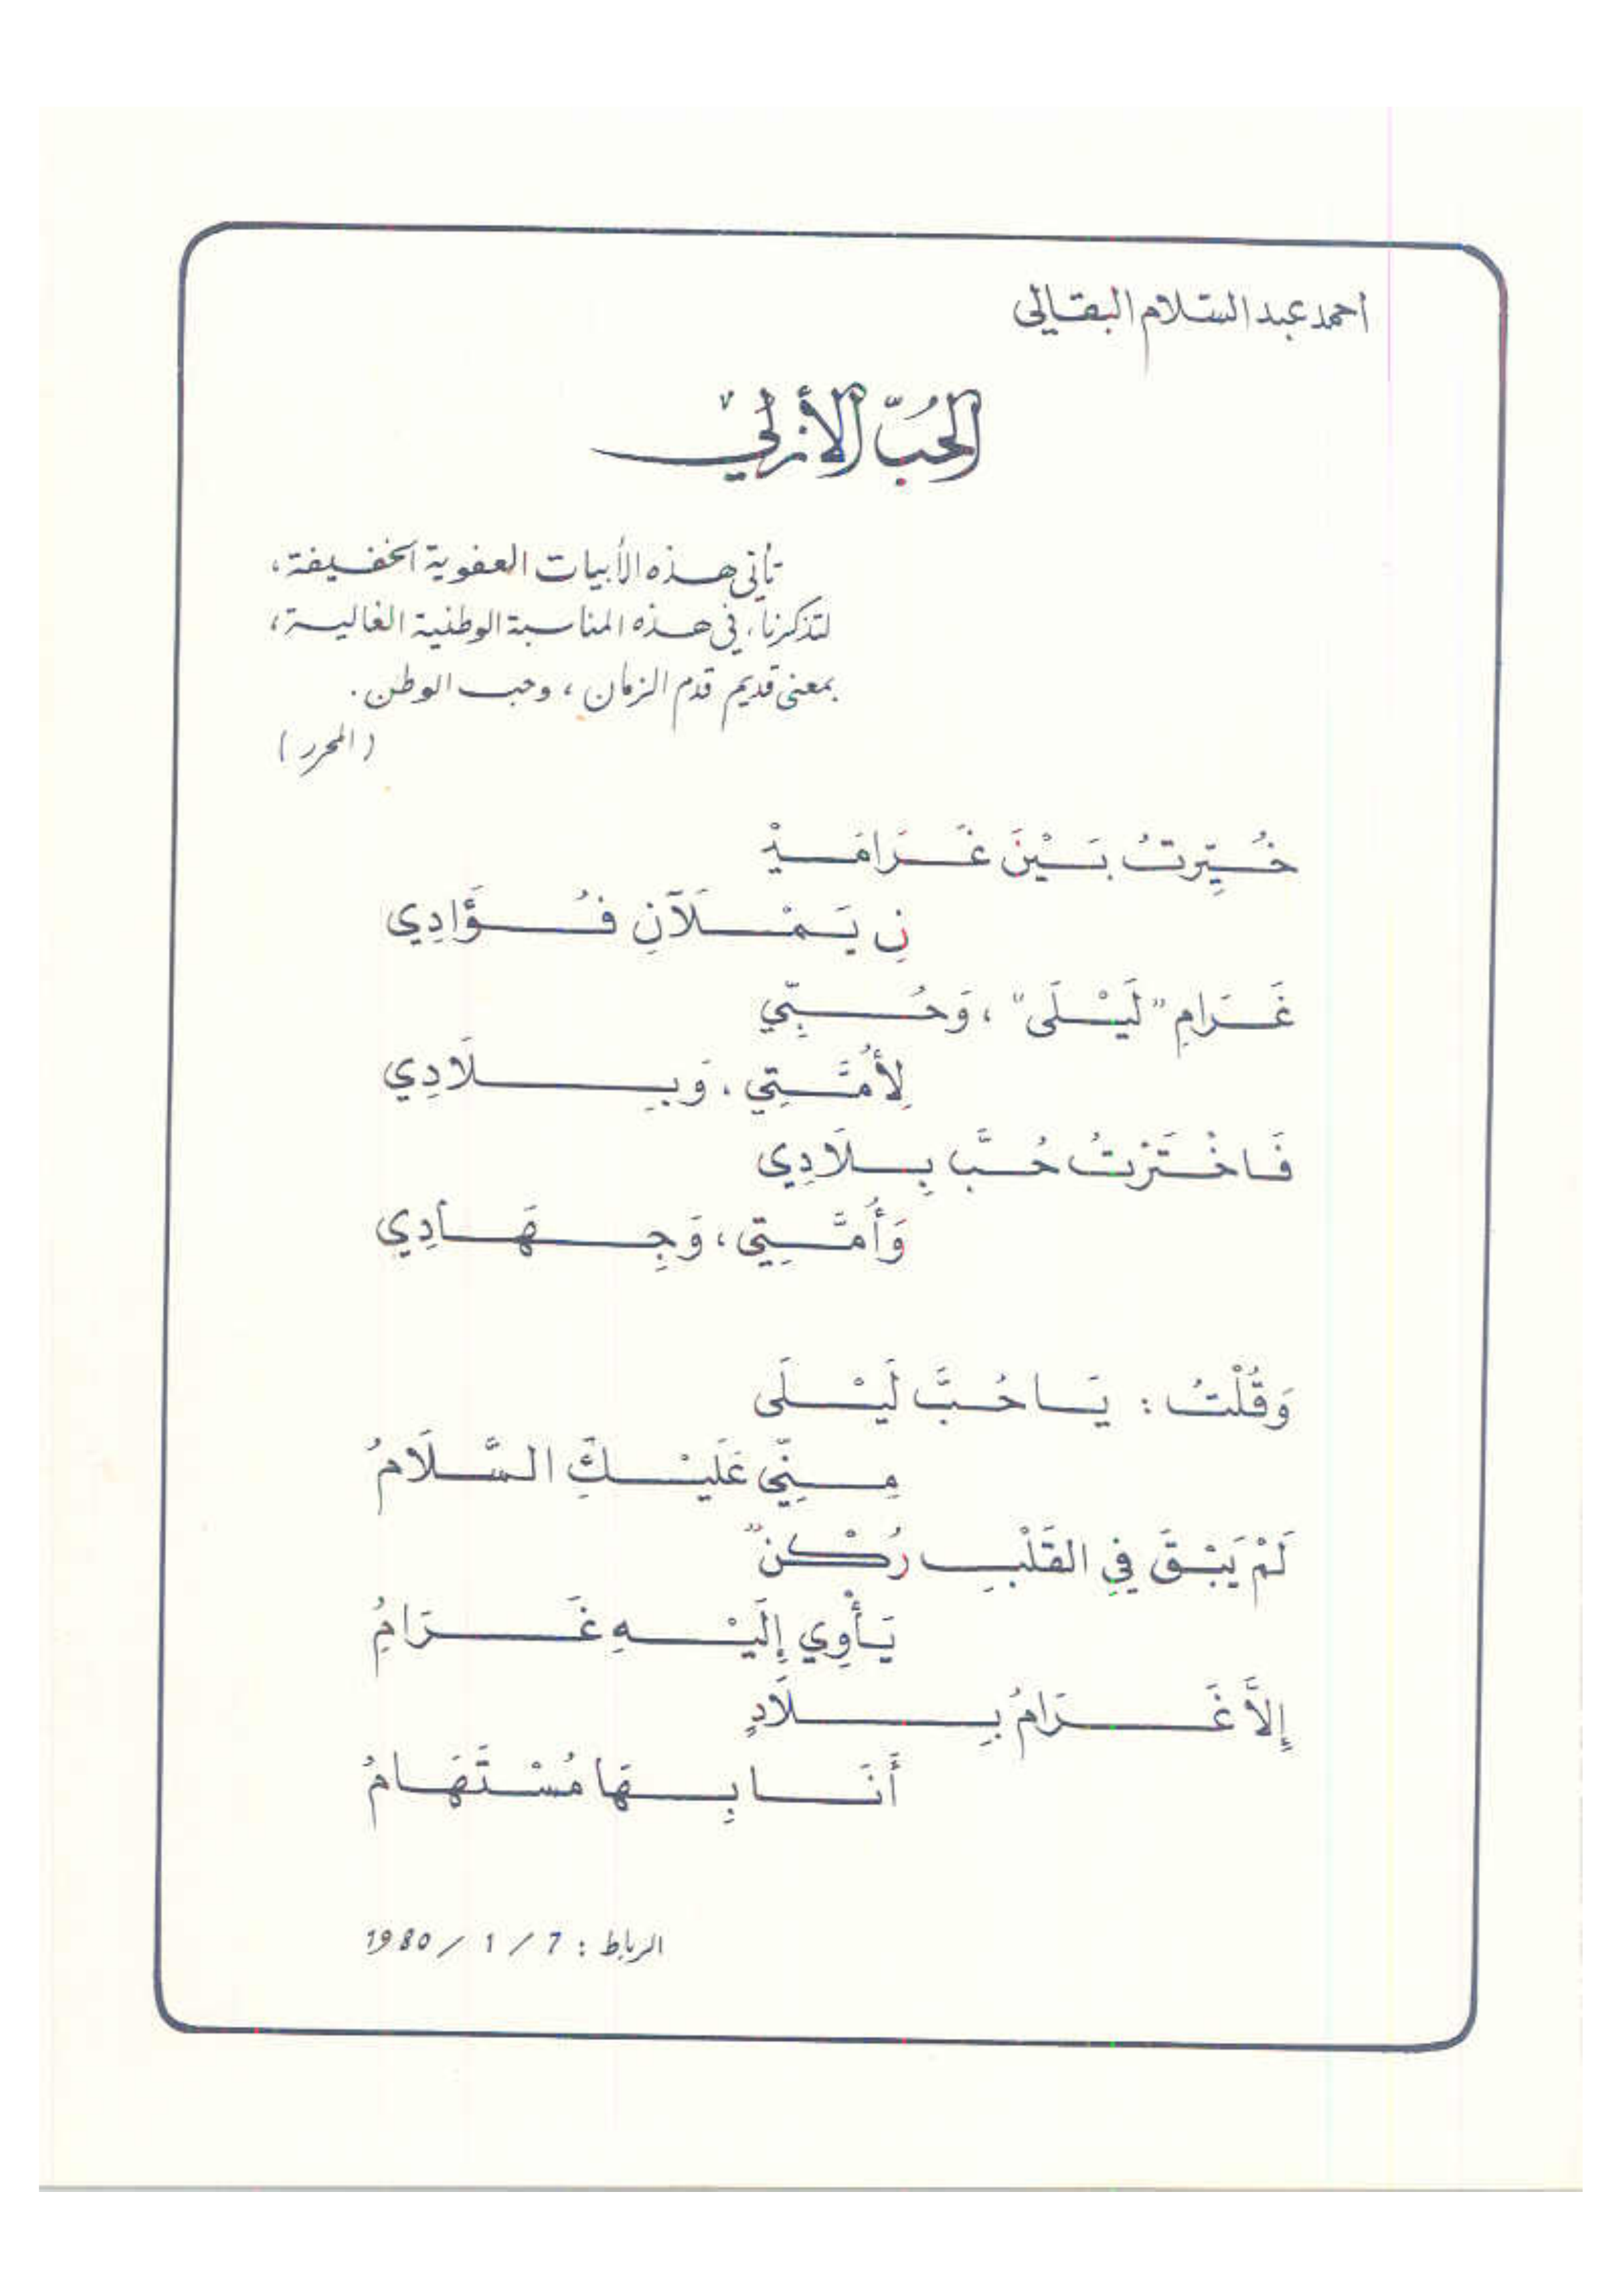 احمد عبد السلام البقالي
الحُبّ الأزلي
تأتي هذه الأبيات العفوية الخفيفة،
لتذكرنا، في هذه المناسبة الوطنية الغالية،
بمعنى قديم قدم الزمان، وحب الوطن.
(المحرر)
خُيِّرتُ بَيْنَ غَرَامَيْ
نِ يَمْلَآنِ فُؤَادِي
غَرَامِ "لَيْلَى"، وَحُبِّي
لِأُمَّتِي، وَبِلَادِي
فَاخْتَرْتُ حُبَّ بِلَادِي
وَأُمَّتِي، وَجِهَادِي
وَقُلْتُ: يَا حُبَّ لَيْلَى
مِنِّي عَلَيْكَ السَّلَامُ
لَمْ يَبْقَ فِي القَلْبِ رُكْنٌ
يَأْوِي إِلَيْهِ غَرَامُ
إِلَّا غَرَامُ بِلَادٍ
أَنَا بِهَا مُسْتَهَامُ
الرباط: 7 / 1 / 1980